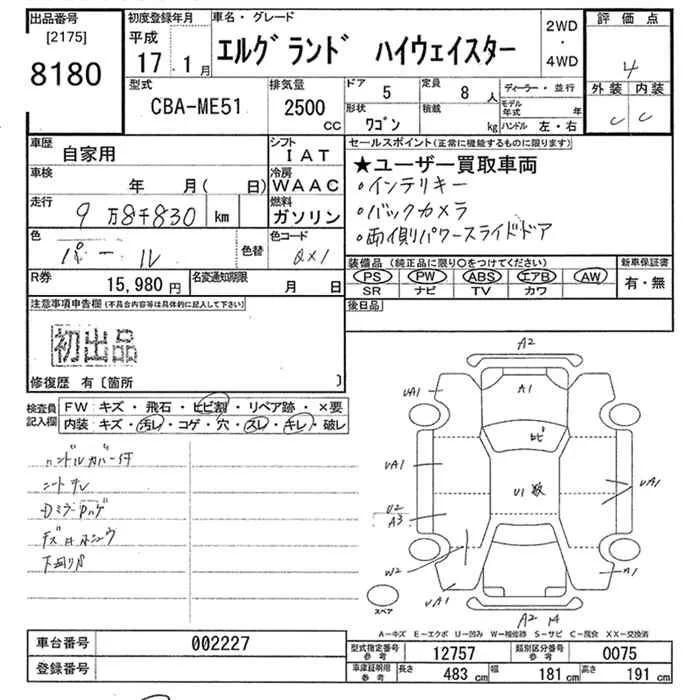 出品番号 初度登録年月 車名・グレード 2WD・4WD 評価点
[2175] 平成 エルグランド ハイウェイスター 4
8180 17・1月
型式 排気量 ドア 5 定員 8人 ディーラー・並行 外装 内装
CBA-ME51 2500cc 形状 ワゴン 積載 kg モデル年式 年 C C
ハンドル 左・右
車歴 自家用 シフト IAT セールスポイント(正常に機能するものに限ります)
車検 年 月( 日) 冷房 WAAC ★ユーザー買取車両
走行 9万8千830 km 燃料 ガソリン ・インテリキー
・バックカメラ
・両側パワースライドドア
色 パール 色替 色コード QX1
装備品(純正品に限り○をつけてください) 新車保証書
R券 15,980円 名変通知期限 月 日 PS PW ABS エアB AW 有・無
SR ナビ TV カワ
注意事項申告欄(不具合内容等は具体的に記入して下さい) 後日品
初出品
修復歴 有〔箇所 〕
検査員記入欄 FW:キズ・飛石・ヒビ割・リペア跡・×要
内装:キズ・汚レ・コゲ・穴・スレ・キレ・破レ
ハンドルカバー付
シートスレ
下回りサビ
A2
UA1 A1
ヒビ
UA1 U1 数 UA1
U2
A3
W2
UA1 A1
スペア
A2
A-キズ E-エクボ U-凹み W-補修跡 S-サビ C-腐食 XX-交換済
車台番号 002227 型式指定番号 参考 12757 類別区分番号 参考 0075
登録番号 車庫証明用 参考 長さ 483 cm 幅 181 cm 高さ 191 cm